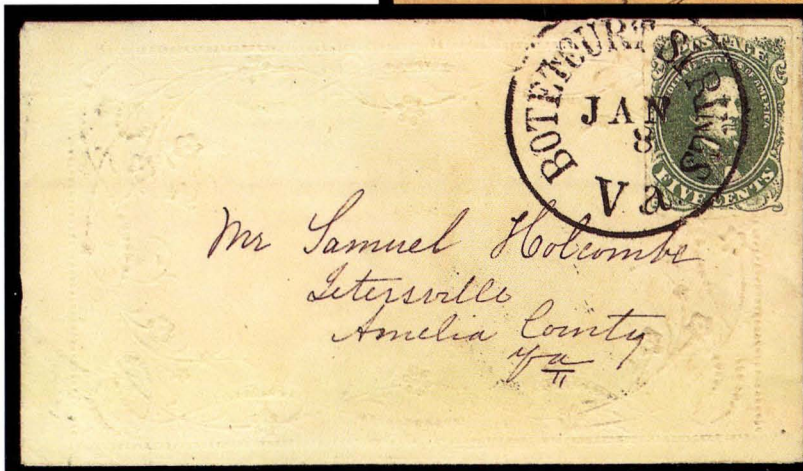 BOTETOURT SPRINGS
JAN
8
Va
POSTAGE
CONFEDERATE STATES OF AMERICA
FIVE CENTS
Mr Samuel Holcombe
Jetersville
Amelia County
Va